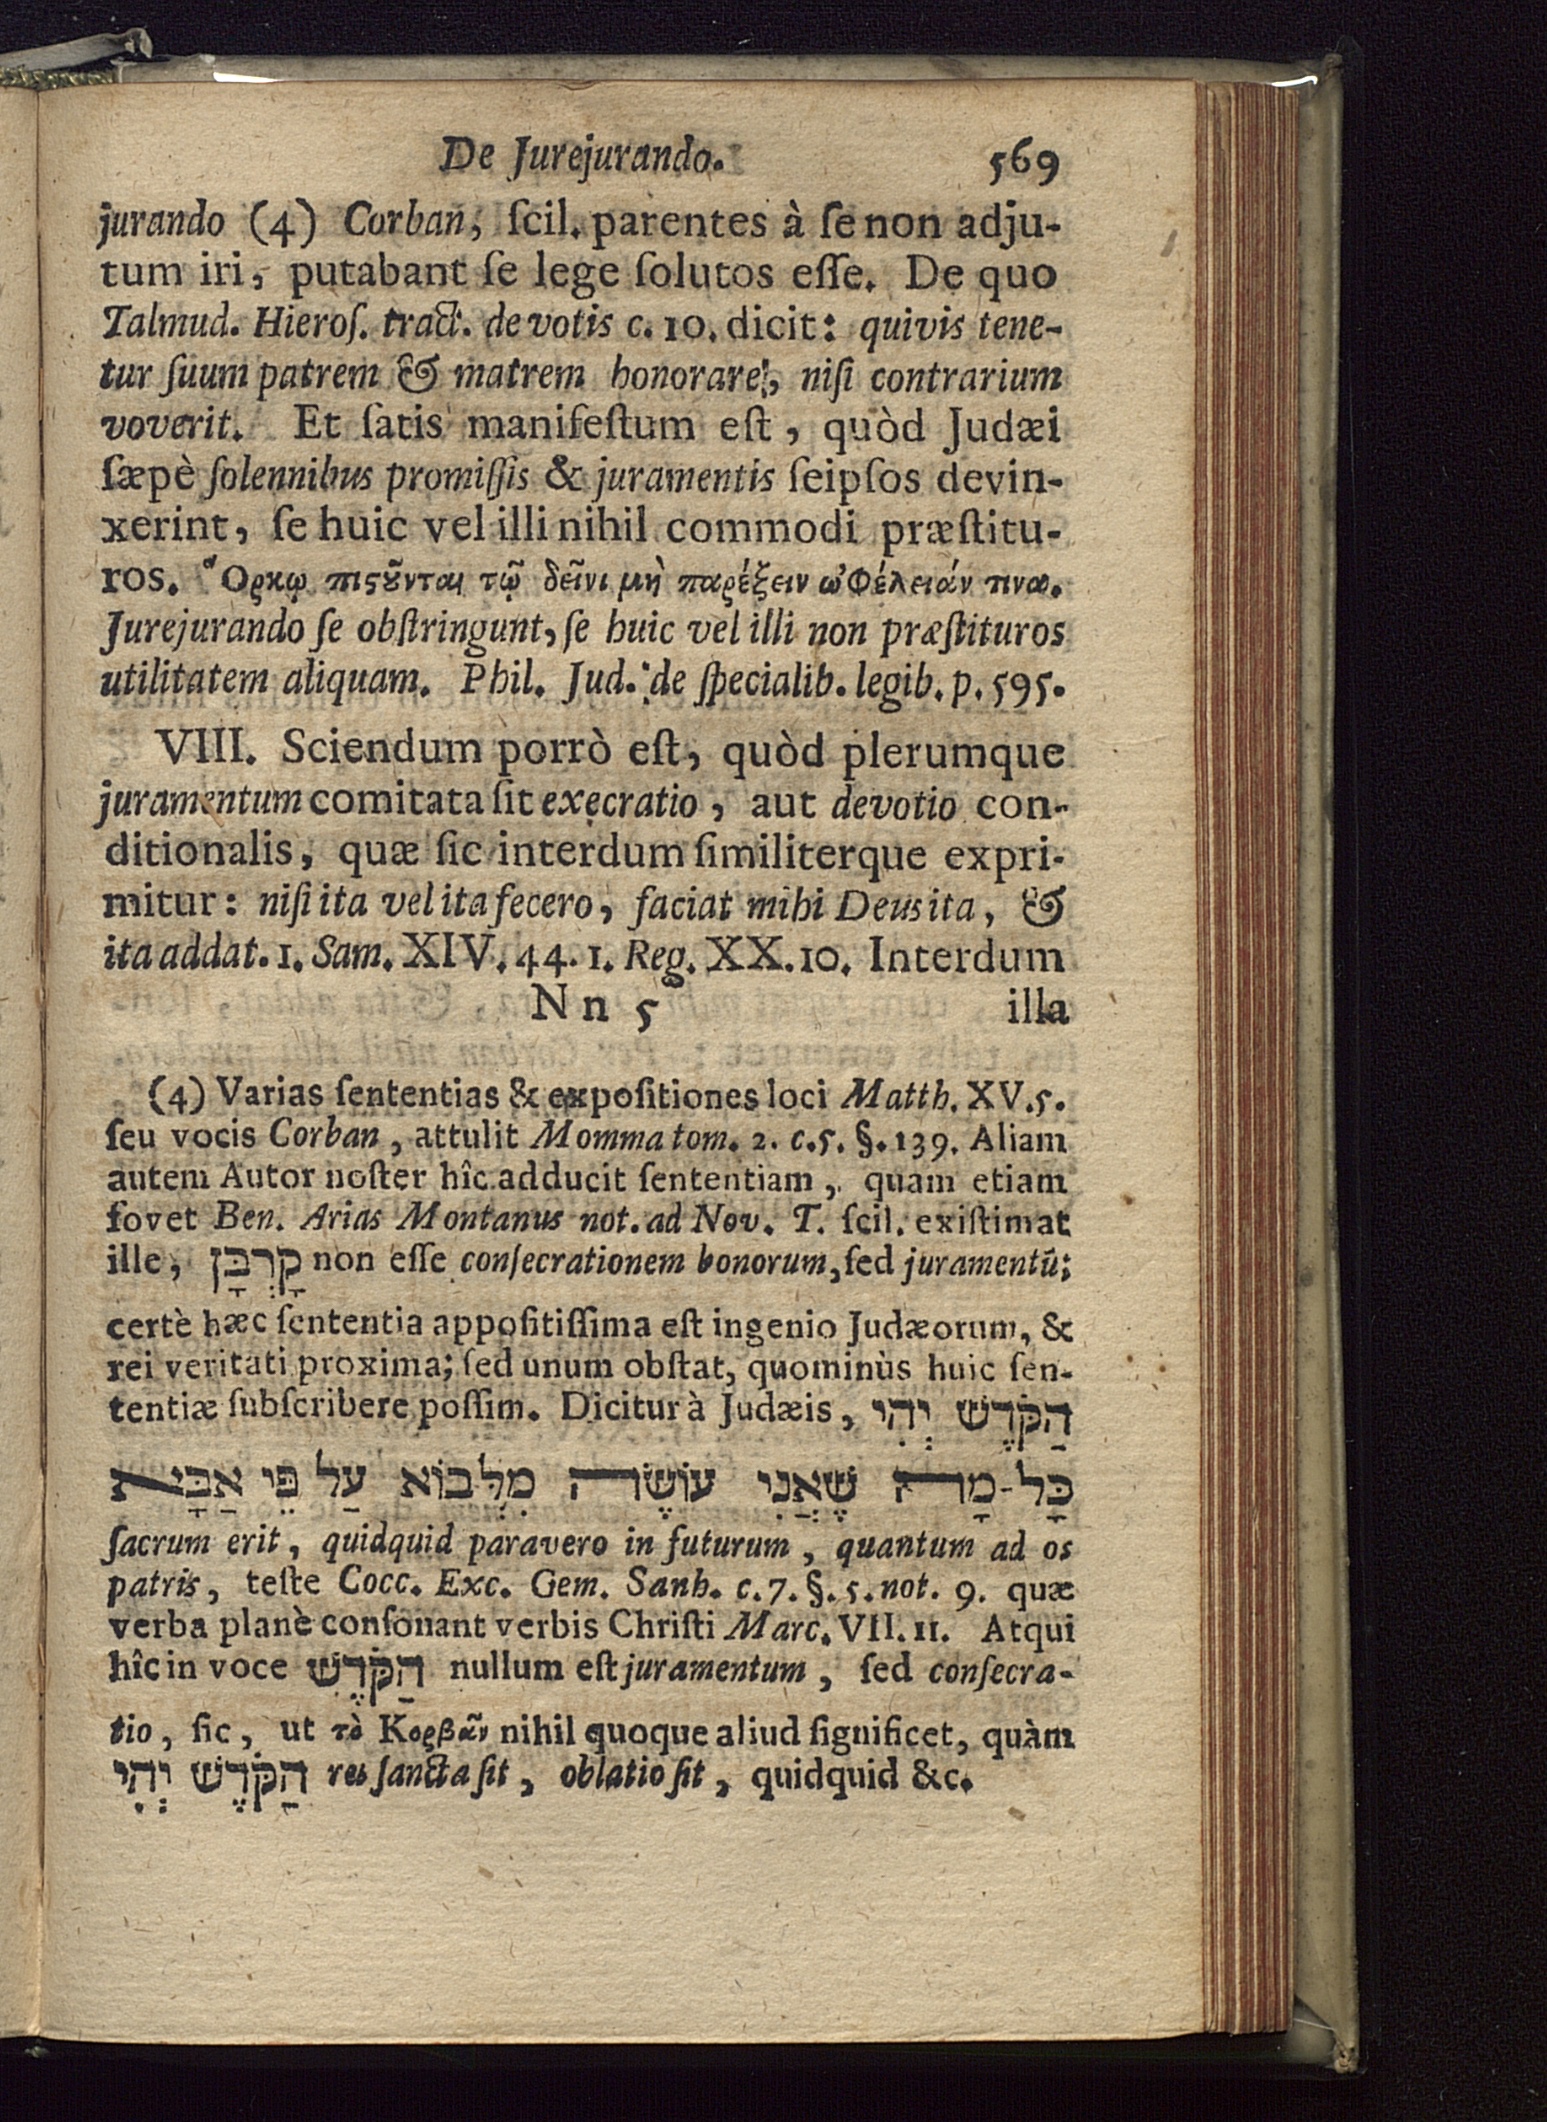 De Jurejurando. 569
jurando (4) Corban, ſcil. parentes à ſe non adju-
tum iri, putabant ſe lege ſolutos eſſe. De quo
Talmud. Hieroſ. tract. de votis c. 10. dicit: quivis tene-
tur ſuum patrem & matrem honorare, niſi contrarium
voverit. Et ſatis manifeſtum eſt, quòd Judæi
ſæpè ſolennibus promiſſis & juramentis ſeipſos devin-
xerint, ſe huic vel illi nihil commodi præſtitu-
ros. Ὅρκῳ πιϛοῦνται τῷ δεῖνι μὴ παρέξειν ὠφέλειάν τινα.
Jurejurando ſe obſtringunt, ſe huic vel illi non præſtituros
utilitatem aliquam. Phil. Jud. de ſpecialib. legib. p. 595.
VIII. Sciendum porrò eſt, quòd plerumque
juramentum comitata ſit execratio, aut devotio con-
ditionalis, quæ ſic interdum ſimiliterque expri-
mitur: niſi ita vel ita fecero, faciat mihi Deus ita, &
ita addat. 1. Sam. XIV. 44. 1. Reg. XX. 10. Interdum
Nn 5 illa
(4) Varias ſententias & expoſitiones loci Matth. XV. 5.
ſeu vocis Corban, attulit Momma tom. 2. c. 5. §. 139. Aliam
autem Autor noſter hîc adducit ſententiam, quam etiam
fovet Ben. Arias Montanus not. ad Nov. T. ſcil. exiſtimat
ille, קָרְבָּן non eſſe conſecrationem bonorum, ſed juramentū;
certè hæc ſententia appoſitiſſima eſt ingenio Judæorum, &
rei veritati proxima; ſed unum obſtat, quominùs huic ſen-
tentiæ ſubſcribere poſſim. Dicitur à Judæis, הַקֹּדֶשׁ יְהִי
כָּל-מָה שֶׁאֲנִי עוֹשֶׂה מִלְּבוֹא עַל פֵּי אַבָּא
ſacrum erit, quidquid paravero in futurum, quantum ad os
patris, teſte Cocc. Exc. Gem. Sanh. c. 7. §. 5. not. 9. quæ
verba planè conſonant verbis Chriſti Marc. VII. 11. Atqui
hîc in voce הַקֹּדֶשׁ nullum eſt juramentum, ſed conſecra-
tio, ſic, ut τὸ Κορβᾶν nihil quoque aliud ſignificet, quàm
הַקֹּדֶשׁ יְהִי res ſancta ſit, oblatio ſit, quidquid &c.